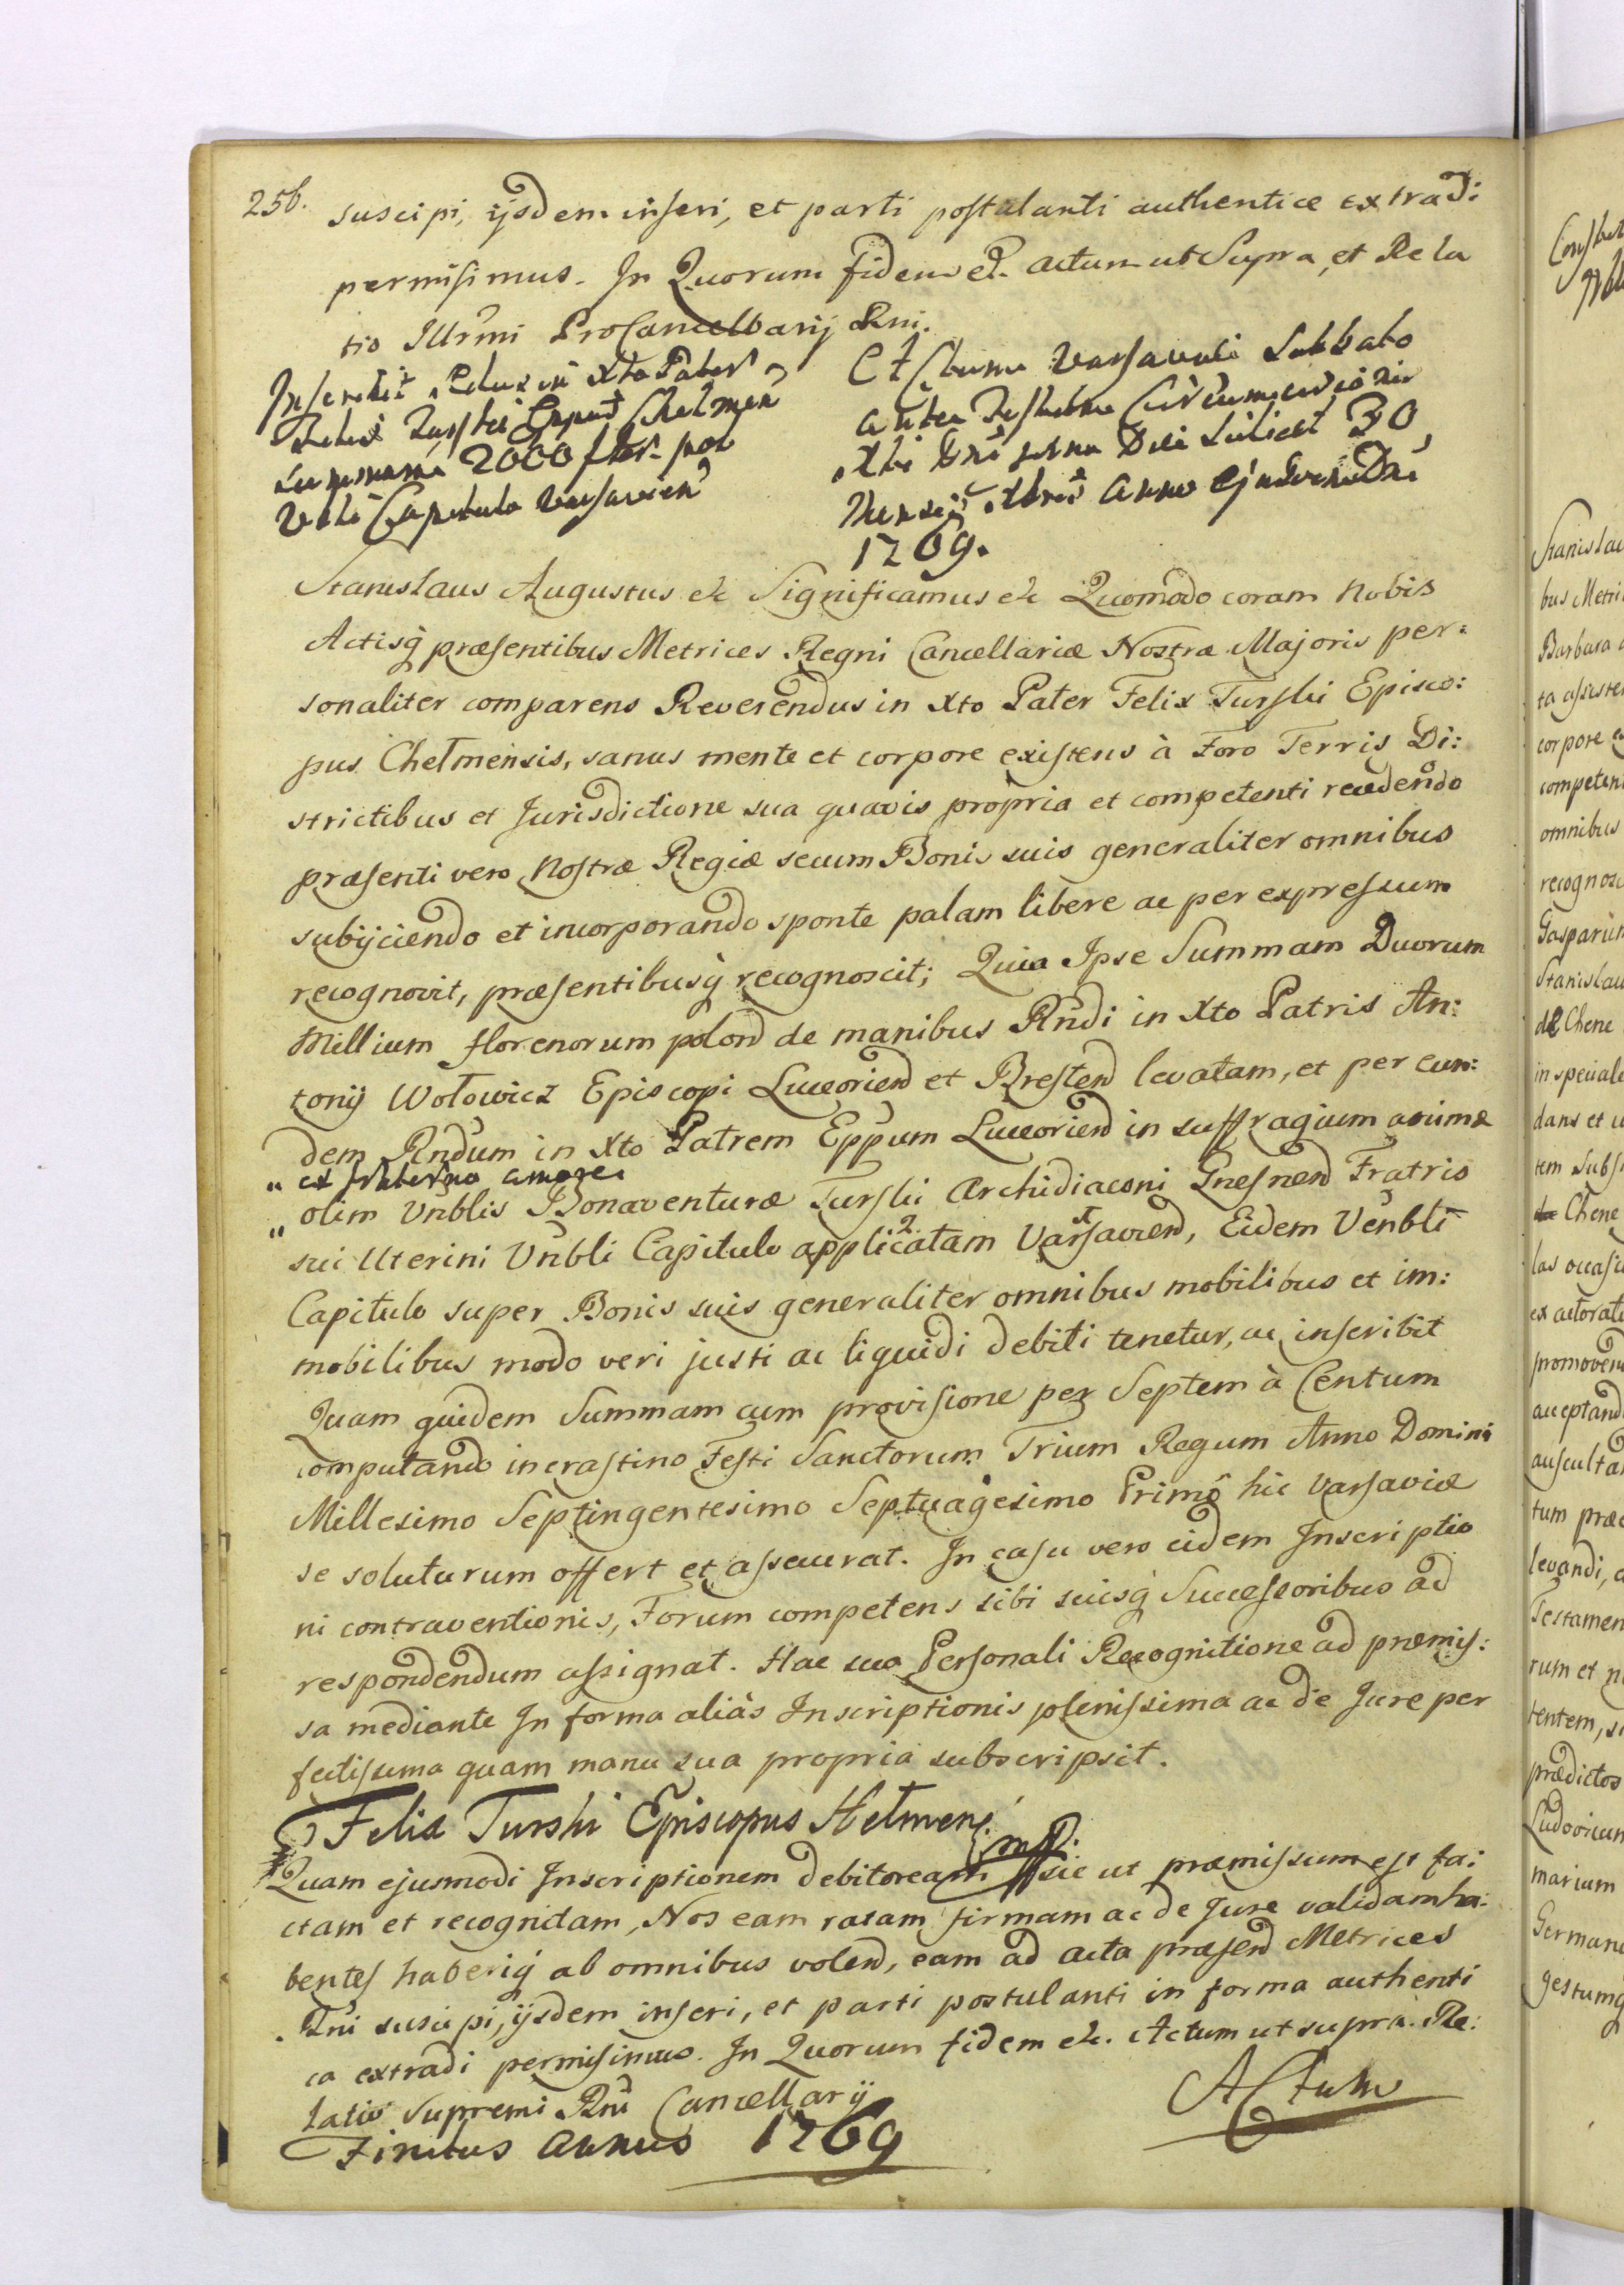 256.
suscipi, ijsdem inseri, et parti postulanti authentice extradi
permisimus. In Quorum fidem etc. Actum ut Supra, et Rela
tio Illrmi ProCancellarij Rni.
Inscribit Rdus in Xto Pater
Felix Turski Eppus Chelmen
summam 2000 flor. pol
Vbli Capitulo Varsavien
Actum Varsaviæ Sabbato
ante Festum Circumcisionis
Xti Dni
Mensis Xbris Anno ejusdem Dni
1769.
Stanislaus Augustus etc Significamus etc Quomodo coram Nobis
Actisq præsentibus Metrices Regni Cancellariæ Nostræ Majoris per:
sonaliter comparens Reverendus in Xto Pater Felix Turski Episco:
pus Chełmensis, sanus mente et corpore existens à Foro Terris Di:
strictibus et Jurisdictione sua quavis propria et competenti recedendo
præsenti vero Nostræ Regiæ secum Bonis suis generaliter omnibus
subijciendo et incorporando sponte palam libere ac per expressum
recognovit, præsentibusq recognoscit; Quia Ipse Summam Duorum
Millium florenorum polon de manibus Rndi in Xto Patris An:
tonij Wołowicz Episcopi Luceorien et Bresten levatam, et per eun:
dem Rndum in Xto Patrem Eppum Luceorien in suffragium animæ
" ex fraterno amore
" olim Vnblis Bonaventuræ Turski Archidiaconi Gnesnen Fratris
sui Uterini Vnbli Capitulo applicatam Varsavien, Eidem Venbli
Capitulo super Bonis suis generaliter omnibus mobilibus et im:
mobilibus modo veri justi ac liquidi debiti tenetur, ac inscribit
Quam quidem Summam cum provisione per Septem à Centum
computando in crastino Festi Sanctorum Trium Regum Anno Domini
Millesimo Septingentesimo Septuagesimo Primo hic Varsaviæ
se soluturum offert et assecurat. In casu vero eidem Inscriptio
ni contraventionis, Forum competens sibi suisq Successoribus ad
respondendum assignat. Hac sua Personali Recognitione ad præmis:
sa mediante In forma aliàs Inscriptionis plenissima ac de Jure per
fectissima quam manu sua propria subscripsit.
Felix Turski Episcopus Hełmens. mp.
Quam ejusmodi Inscriptionem debitoream sic ut præmissum est fa:
ctam et recognitam, Nos eam ratam firmam ac de Jure validam ha:
bentes haberiq ab omnibus volen, eam ad acta præsen Metrices
Rni suscipi, ijsdem inseri, et parti postulanti in forma authenti
ca extradi permisimus. In Quorum fidem etc. Actum ut supra. Re:
latio Supremi Rni Cancellarij
Finitus Annus 1769
Actum
Stanislau
bus Metri
Barbara
ta assiste
corpore
competen
omnibus
recognosc
Gasparum
Stanislau
de Chene
in speciale
dans et
tem subs
Chene
las occasi
ex actorat
promoven
acceptand
auscultan
tum præ
levandi,
Testamen
rum et
tentem, s
prædictos
Ludovicum
marium
German
gestumq